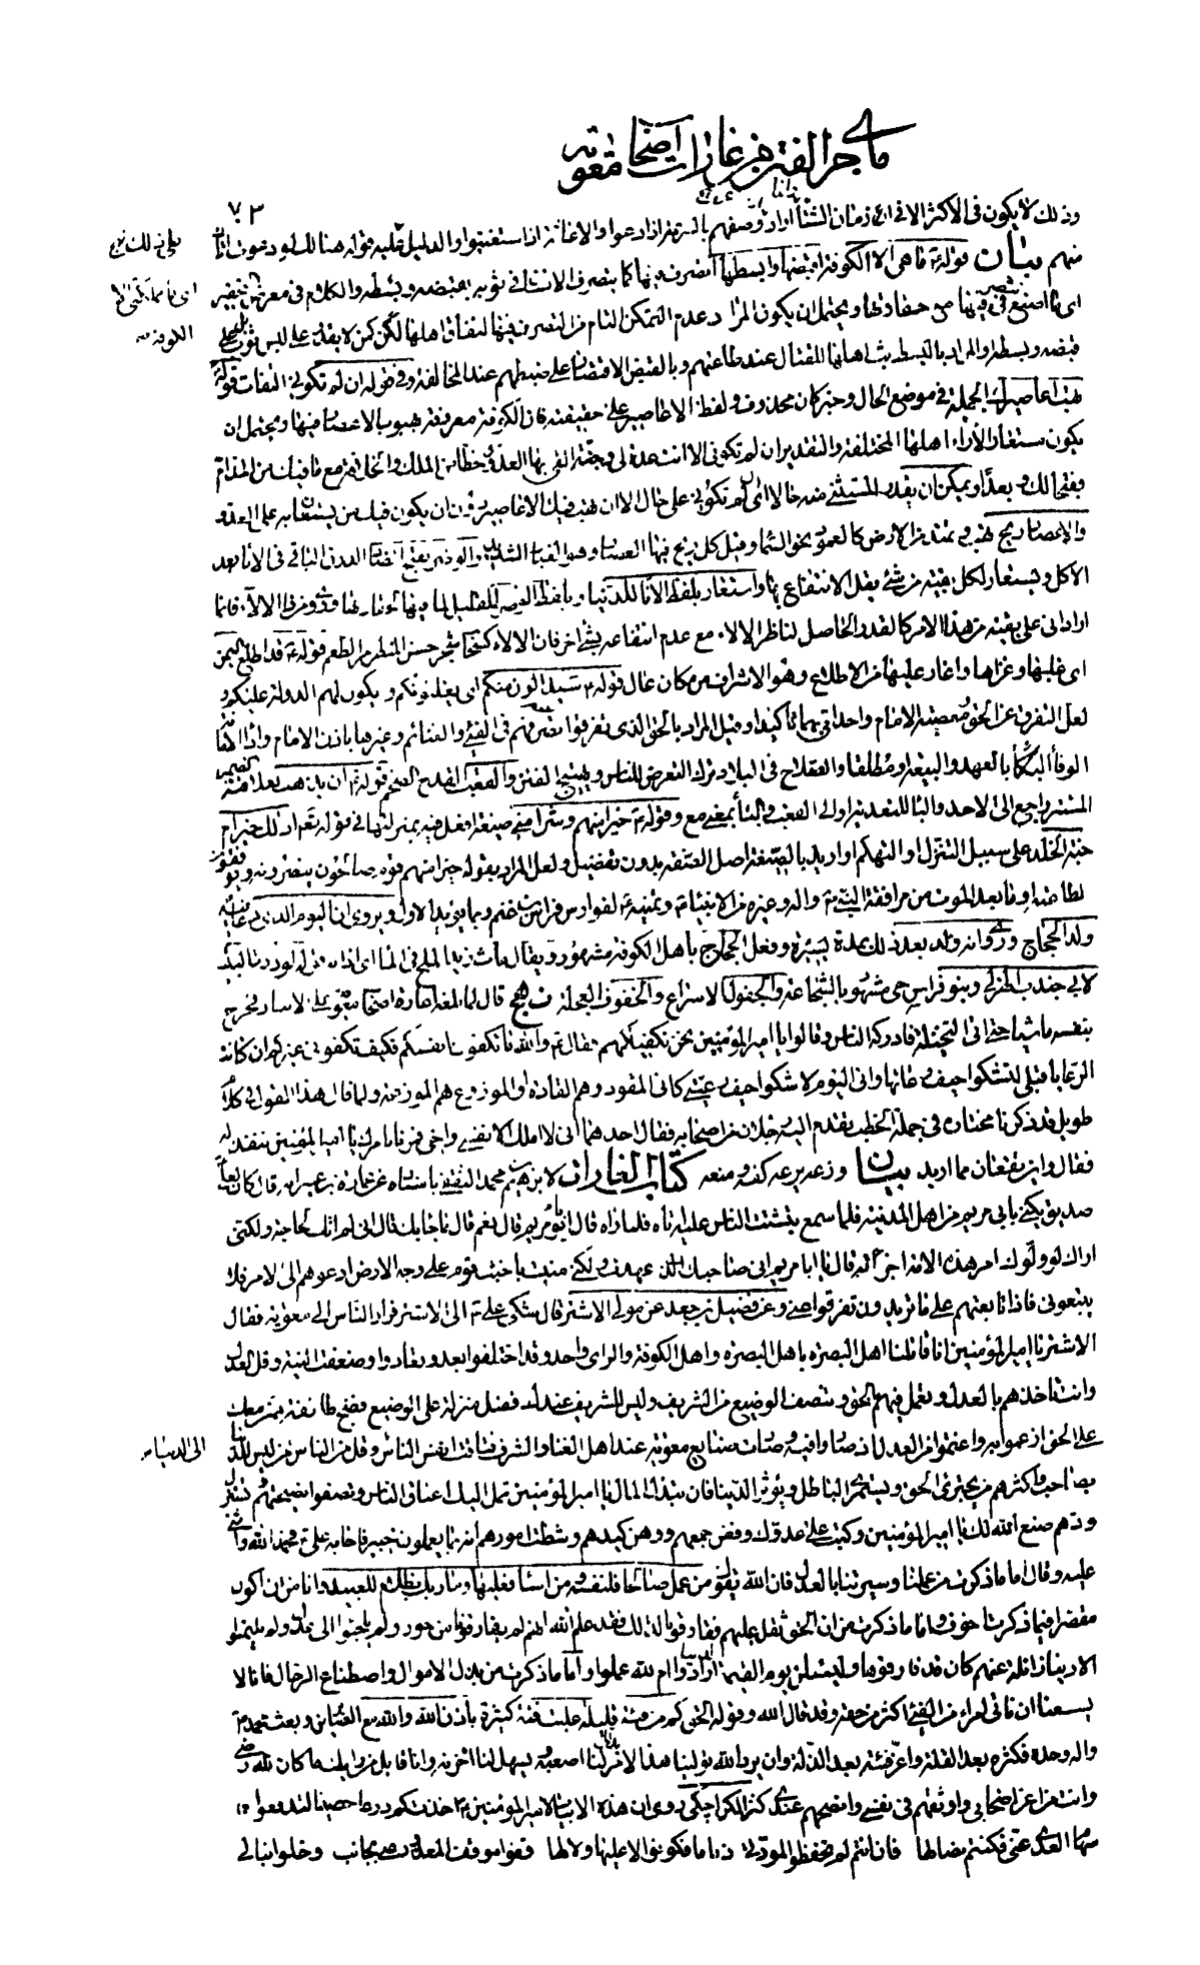 ما جرى من الفتن من غارات أصحاب معوية
٧٠٣
وذلك لا يكون في الأكثر الا في زمان الشتاء أراد وصفهم بالسرعة إذا دعوا والاغاثة إذا استغيثوا والدليل عليه قوله هنالك لو دعوت أتاك
منهم بيان قوله ما هي الا الكوفة أقبضها وأبسطها أتصرف فيها كما يتصرف الانسان في ثوبه بقبضه وبسطه والكلام في معرض
أي ما أصنع بتصرفي فيها مع حقارتها ويحتمل ان يكون المراد عدم التمكن التام من التصرف فيها لنفاق أهلها كمن لا يقدر على لبس ثوب بل على
قبضه وبسطه والمراد بالبسط بث أهلها للقتال عند طاعتهم وبالقبض الاقتصار على ضبطهم عند المخالفة وفي قوله ان لم تكوني التفات قوله
تهب أعاصيرك الجملة في موضع الحال وخبر كان محذوف ولفظ الاعاصير على حقيقته فان الكوفة معروفة بهبوب الاعصار فيها ويحتمل ان
يكون مستعارا لآراء أهلها المختلفة والتقدير ان لم تكوني الا أنت عدة لي وجنة ألقى بها العدو وحظا من الملك والخلافة مع ما فيك من المذام
فقبحا لك وبعدا ويمكن ان يقدر المستثنى منه حالا أي ان لم تكوني على حال الا ان تهب فيك الاعاصير دون ان يكون فيك من يستعان به على العدو
والاعصار ريح تهب وتمتد من الأرض كالعمود نحو السماء وقيل كل ريح فيها العصار وهو الغبار الشديد والوضر بفتح الضاد الدرن الباقي في الاناء بعد
الأكل ويستعار لكل بقية من شيء يقل الانتفاع بها واستعار بلفظ الاناء للدنيا وبلفظ الوضر القليل لما فيها
أراد اني على بقية من هذا الامر كالقدر الحاصل لناظر الالاء مع عدم انتفاعه بشيء آخر فان الالاء كسحاب شجر حسن المنظر مر الطعم قوله قد اطلع اليمن
أي غلبها وغزاها وأغار عليها من الاطلاع وهو الاشراف من مكان عال قوله سيدالون منكم أي يغلبونكم ويكون لهم الدولة عليكم و
لعل التفرق عن الحق ومعصية الامام واحد أتى بهما تأكيدا وقيل المراد بالحق الذي تفرقوا عنه تصرفهم في الفيء والغنائم وغيرها باذن الامام وأداء الأمانة
الوفاء بالعهد والبيعة أو مطلقا والصلاح في البلاد ترك التعرض للناس وتهييج الفتن والقعب القدح الضخم قوله ان يذهب بعلاقته الضمير
المستتر راجع إلى الاحد والباء للتعدية أو إلى القعب والباء بمعنى مع وقوله خيرا منهم وشرا مني صيغة أفعل فيه بمنزلتها في قوله تعالى أذلك خير أم
جنة الخلد على سبيل التنزل أو التهكم أو أريد بالصيغة أصل الصفة بدون تفضيل ولعل المراد بقوله خيرا منهم قوم صالحون ينصرونه ويوفقون
لطاعته أو ما بعد الموت من مرافقة النبي وآله وغيره من الأنبياء وتمنيه لفوارس فراس بن غنم ربما يؤيد الأول ويروى ان اليوم الذي دعا فيه
ولد الحجاج وروي انه ولد بعد ذلك بمدة يسيرة وفعل الحجاج بأهل الكوفة مشهور ويقال ماث زيد الملح في الماء أي أذابه
لأبي جندب الهذلي وبنو فراس حي مشهور بالشجاعة والجفول الاسراع والخفوف العجلة نهج قال لما بلغه اغارة أصحاب معوية على الأنبار فخرج
بنفسه ماشيا حتى أتى النخيلة فأدركه الناس وقالوا يا أمير المؤمنين نحن نكفيكهم فقال والله ما تكفونني أنفسكم فكيف تكفونني غيركم ان كانت
الرعايا قبلي لتشكو حيف رعاتها واني اليوم لأشكو حيف رعيتي كأني المقود وهم القادة أو الموزوع وهم الوزعة ولما قال هذا القول في كلام
طويل قد ذكرنا مختاره في جملة الخطب تقدم اليه رجلان من أصحابه فقال أحدهما اني لا أملك الا نفسي وأخي فمرنا بأمرك يا أمير المؤمنين ننفذ له
فقال وأين تقعان مما أريد بيان وزعه يزعه كفه ومنعه كتاب الغارات لابراهيم بن محمد الثقفي باسناده
صديق يكنى بأبي مريم من أهل المدينة فلما سمع بتشتت الناس عليه أتاه فلما رآه قال أبو مريم قال نعم قال ما جاء بك قال اني لم آتك لحاجة ولكني
أراك لو ولوك أمر هذه الأمة أجزأته قال يا أبا مريم اني صاحبك الذي عهدت ولكني منيت بأخبث قوم على وجه الأرض أدعوهم إلى الامر فلا
يتبعوني فإذا تابعتهم على ما يريدون تفرقوا عني وعن فضيل بن جعد عن مولى الأشتر قال شكى علي إلى الأشتر فرار الناس إلى معوية فقال
الأشتر يا أمير المؤمنين انا قاتلنا أهل البصرة بأهل البصرة وأهل الكوفة والرأي واحد وقد اختلفوا بعد وتعادوا وضعفت النية وقل العدل
وأنت تأخذهم بالعدل وتعمل فيهم بالحق وتنصف الوضيع من الشريف وليس للشريف عندك فضل منزلة على الوضيع فضج طائفة ممن معك
على الحق إذ عموا به واغتموا من العدل إذ صاروا فيه وصارت صنايع معوية عند أهل الغنا والشرف فتاقت أنفس الناس وقل من الناس من ليس للدنيا
بصاحب وأكثرهم من يجتوي الحق ويستمرء الباطل ويؤثر الدنيا فان تبذل المال يا أمير المؤمنين تمل إليك أعناق الناس وتصفو نصيحتهم
ودهم صنع الله لك يا أمير المؤمنين وكبت عدوك وفض جمعهم ووهن كيدهم وشتت أمورهم انه بما يعملون خبير فأجابه علي فحمد الله وأثنى
عليه وقال اما ما ذكرت من عملنا وسيرتنا بالعدل فان الله يقول من عمل صالحا فلنفسه ومن أساء فعليها وما ربك بظلام للعبيد وانا من ان أكون
مقصرا فيما ذكرت أخوف واما ما ذكرت من ان الحق ثقل عليهم ففارقونا لذلك فقد علم الله انهم لم يفارقونا من جور ولم يلجئوا إلى عدل ولم يلتمسوا
الا دنيا زائلة عنهم كان قد فارقوها وليسئلن يوم القيمة أللدنيا أرادوا أم لله عملوا واما ما ذكرت من بذل الأموال واصطناع الرجال فانا لا
يسعنا ان نؤتي امرءا من الفيء أكثر من حقه وقد قال الله وقوله الحق كم من فئة قليلة غلبت فئة كثيرة باذن الله والله مع الصابرين وبعث محمدا
وآله وحده فكثره بعد القلة وأعز فئته بعد الذلة وان يرد الله تولينا هذا الامر يذلل لنا أصعبه ويسهل لنا أحزنه وانا قابل من رأيك ما كان لله رضى
وأنت من أعز أصحابي وأوثقهم في نفسي وأنصحهم عندي كنز الكراجكي روي ان هذه الأبيات لأمير المؤمنين أخذتكم درعا حصينا لتدفعوا
سهام العدى عني فكنتم نصالها فان أنتم لم تحفظوا لمودتي ذماما فكونوا لا عليها ولا لها قفوا موقف المعذور عني بجانب وخلوا نبالي